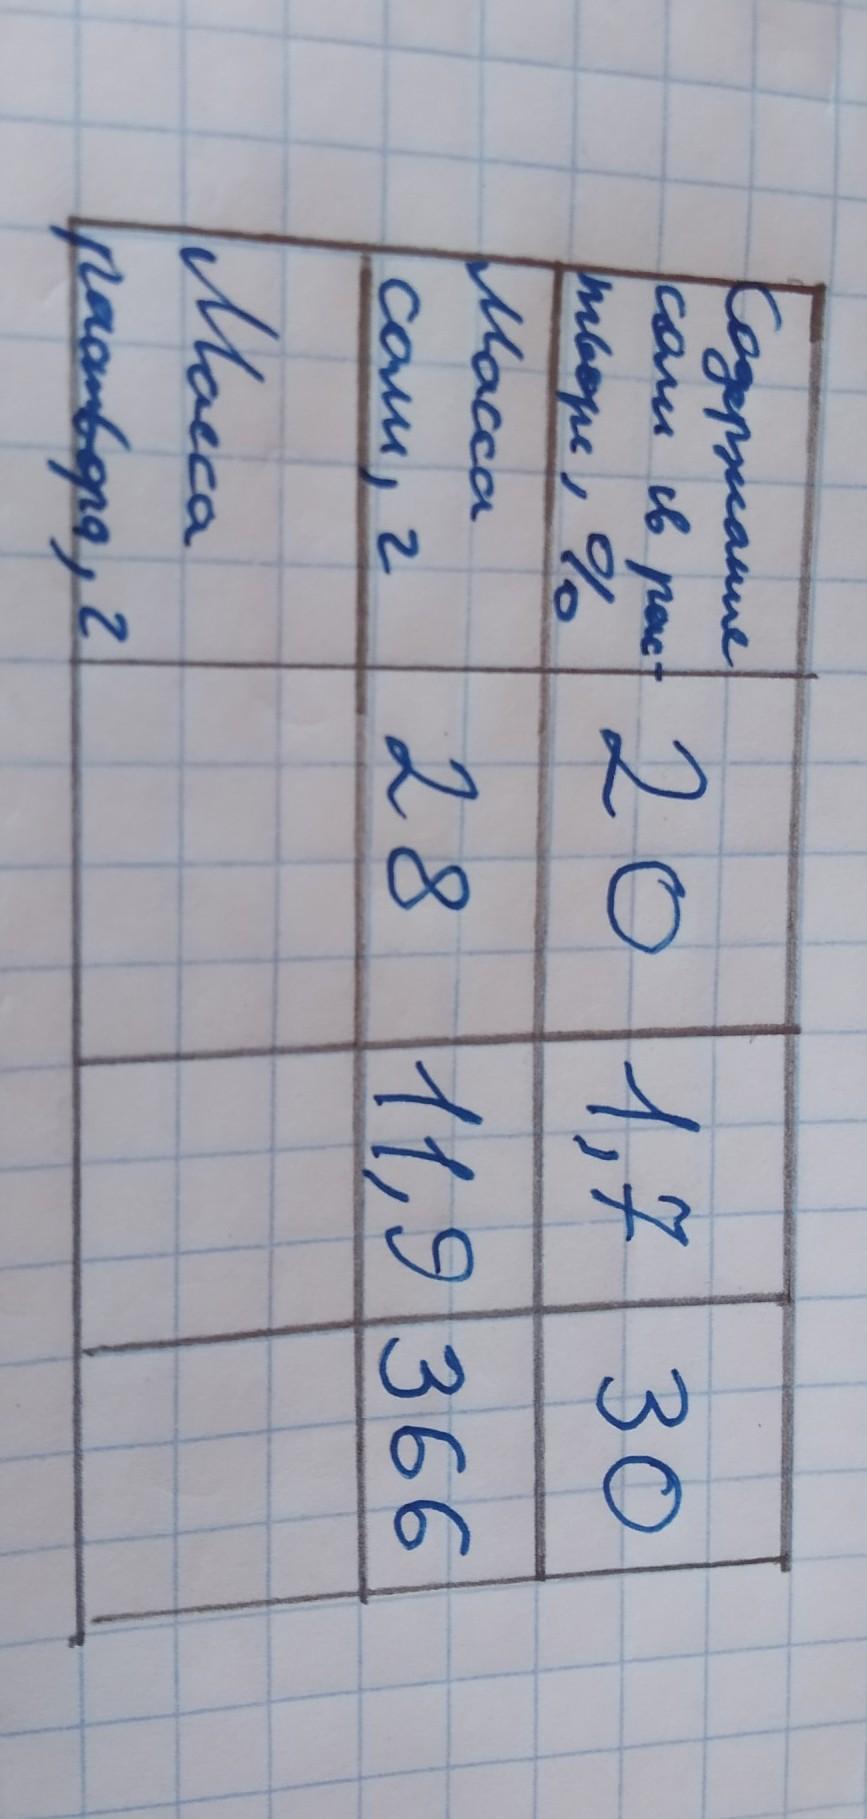 Содержание
соли в рас-
творе, %
20
1,7
30
Масса
соли, г
28
11,9
366
Масса
раствора, г